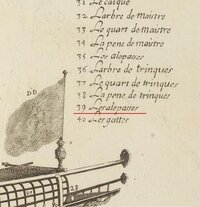 31 Le caique
32 L'arbre de maistre
33 Le quart de maistre
34 La pene de maistre
35 Les alepasses
36 L'arbre de trinques
37 Le quart de trinques
38 La pene de trinques
39 Les alepasses
40 Les gattes
DD
39